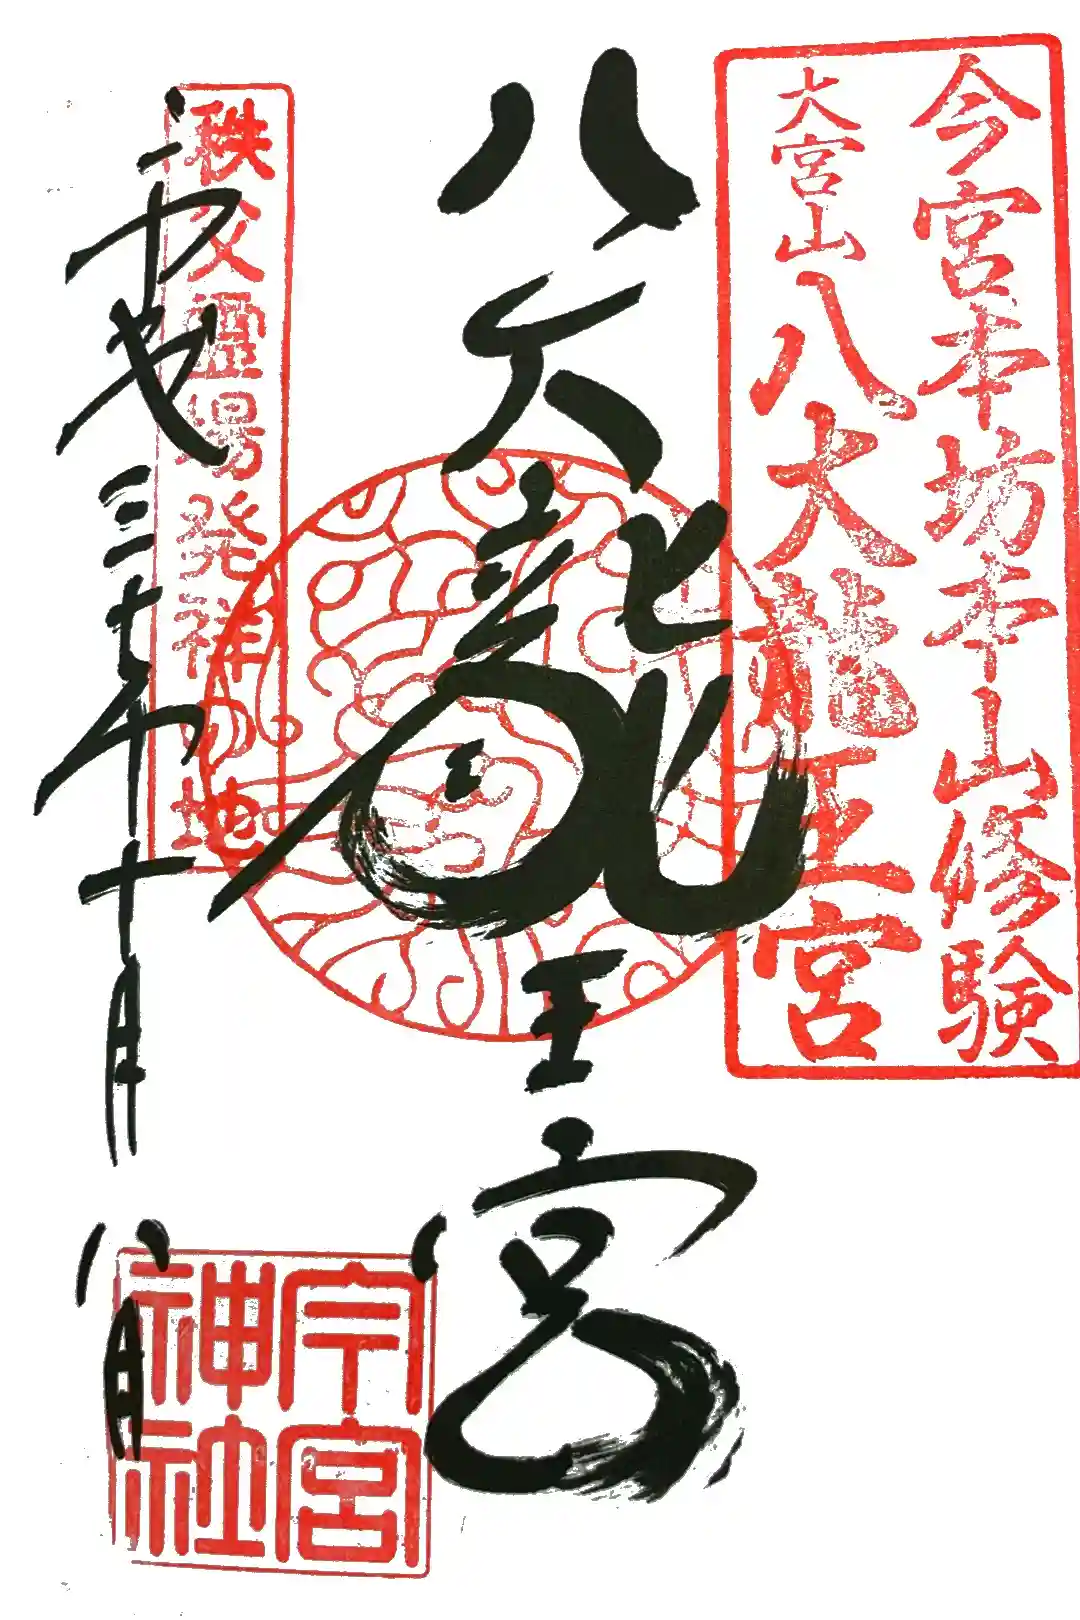 今宮本坊本山修験
大宮山八大龍王宮
八大龍王宮
秩父霊場発祥の地
平成二十七年十月八日
今宮
神社